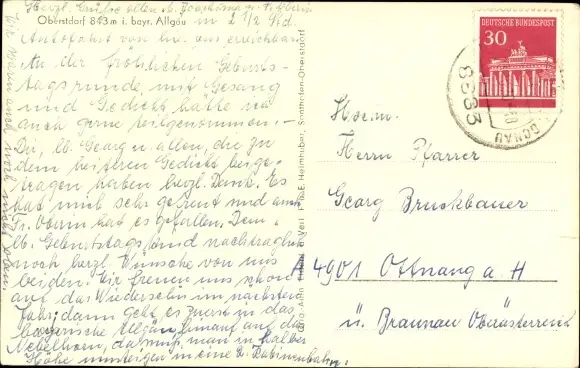 Herzl. Grüße allen
Oberstdorf 843 m i. bayr. Allgäu in 2 1/2 Std.
Autofahrt von hr. aus erreichbar
An ihr fröhlichen Geburts-
tagsrunde, mit Gesang
und Gedicht hätte ich
auch gerne teilgenommen. –
Dir, lb. Georg u. allen, die zu
dem heiteren Gedicht beige-
tragen haben herzl. Dank. Es
hat mich sehr gefreut und auch
Fr. Oberin hat es gefallen. Dem
lb. Geburtstagskind nachträglich
noch herzl. Wünsche von uns
beiden. Wir freuen uns schon
auf das Wiedersehn im nächsten
Jahr; dann geht es zuerst in das
bayerische Allgäu, hinauf auf das
Nebelhorn, da muß man in halber
Höhe umsteigen in eine 2. Kabinenbahn.
Heimhuber, Sonthofen-Oberstdorf
DEUTSCHE BUNDESPOST
30
8383
Hochw.
Herrn Pfarrer
Georg Bruckbauer
A 4901 Ottnang a. H
ü. Braunau Oberösterreich